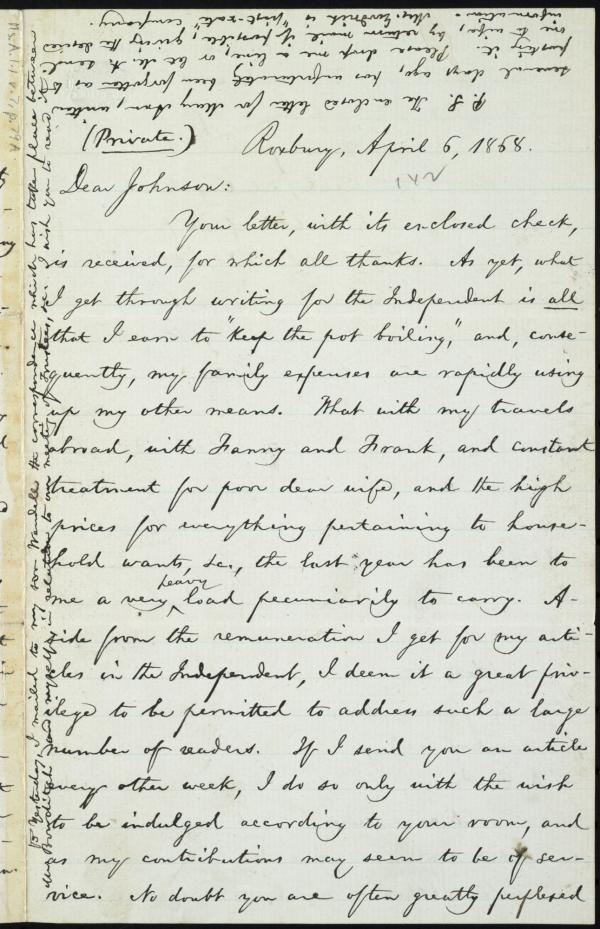 (Private.) Roxbury, April 6, 1868.
142
Dear Johnson:
Your letter, with its enclosed check,
is received, for which all thanks. As yet, what
I get through writing for the Independent is all
that I earn to "keep the pot boiling," and, conse-
quently, my family expenses are rapidly using
up my other means. What with my travels
abroad, with Fanny and Frank, and constant
treatment for poor dear wife, and the high
prices for everything pertaining to house-
hold wants, &c., the last year has been to
me a very heavy load pecuniarily to carry. A-
side from the remuneration I get for my arti-
cles in the Independent, I deem it a great priv-
ilege to be permitted to address such a large
number of readers. If I send you an article
every other week, I do so only with the wish
to be indulged according to your room, and
as my contributions may seem to be of ser-
vice. No doubt you are often greatly perplexed
P. S. The enclosed letter for , written
several days ago, has unfortunately been forgotten as to
posting it. Please drop me a line, or be able to send
one to wife, by return mail if possible, giving the desired
information.
Mrs. is "first-rate" company.
Yesterday, I mailed to my son Wendell the correspondence which has taken place between
Mr. Bowditch and myself in relation to our meeting of Trustees, &c. I wish you to read it.
Ms.A.1.1 v.7, p.79A